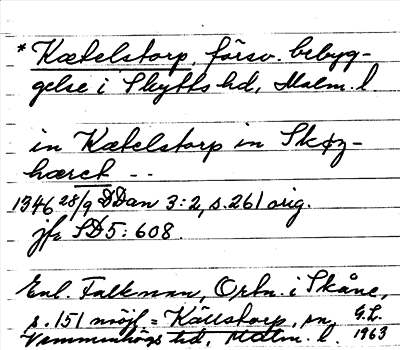 * Kætelstorp, försv. bebyg-
gelse i Skytts hd, Malm. l
in Kætelstorp in Skøz-
hæret - -
1346 28/9 DDan 3:2, s. 261 orig.
jfr SD 5: 608.
Enl. Falkman, Ortn. i Skåne,
s. 151 möjl = Källstorp, sn, G.L.
Vemmenhögs hd, Malm. l. 1963